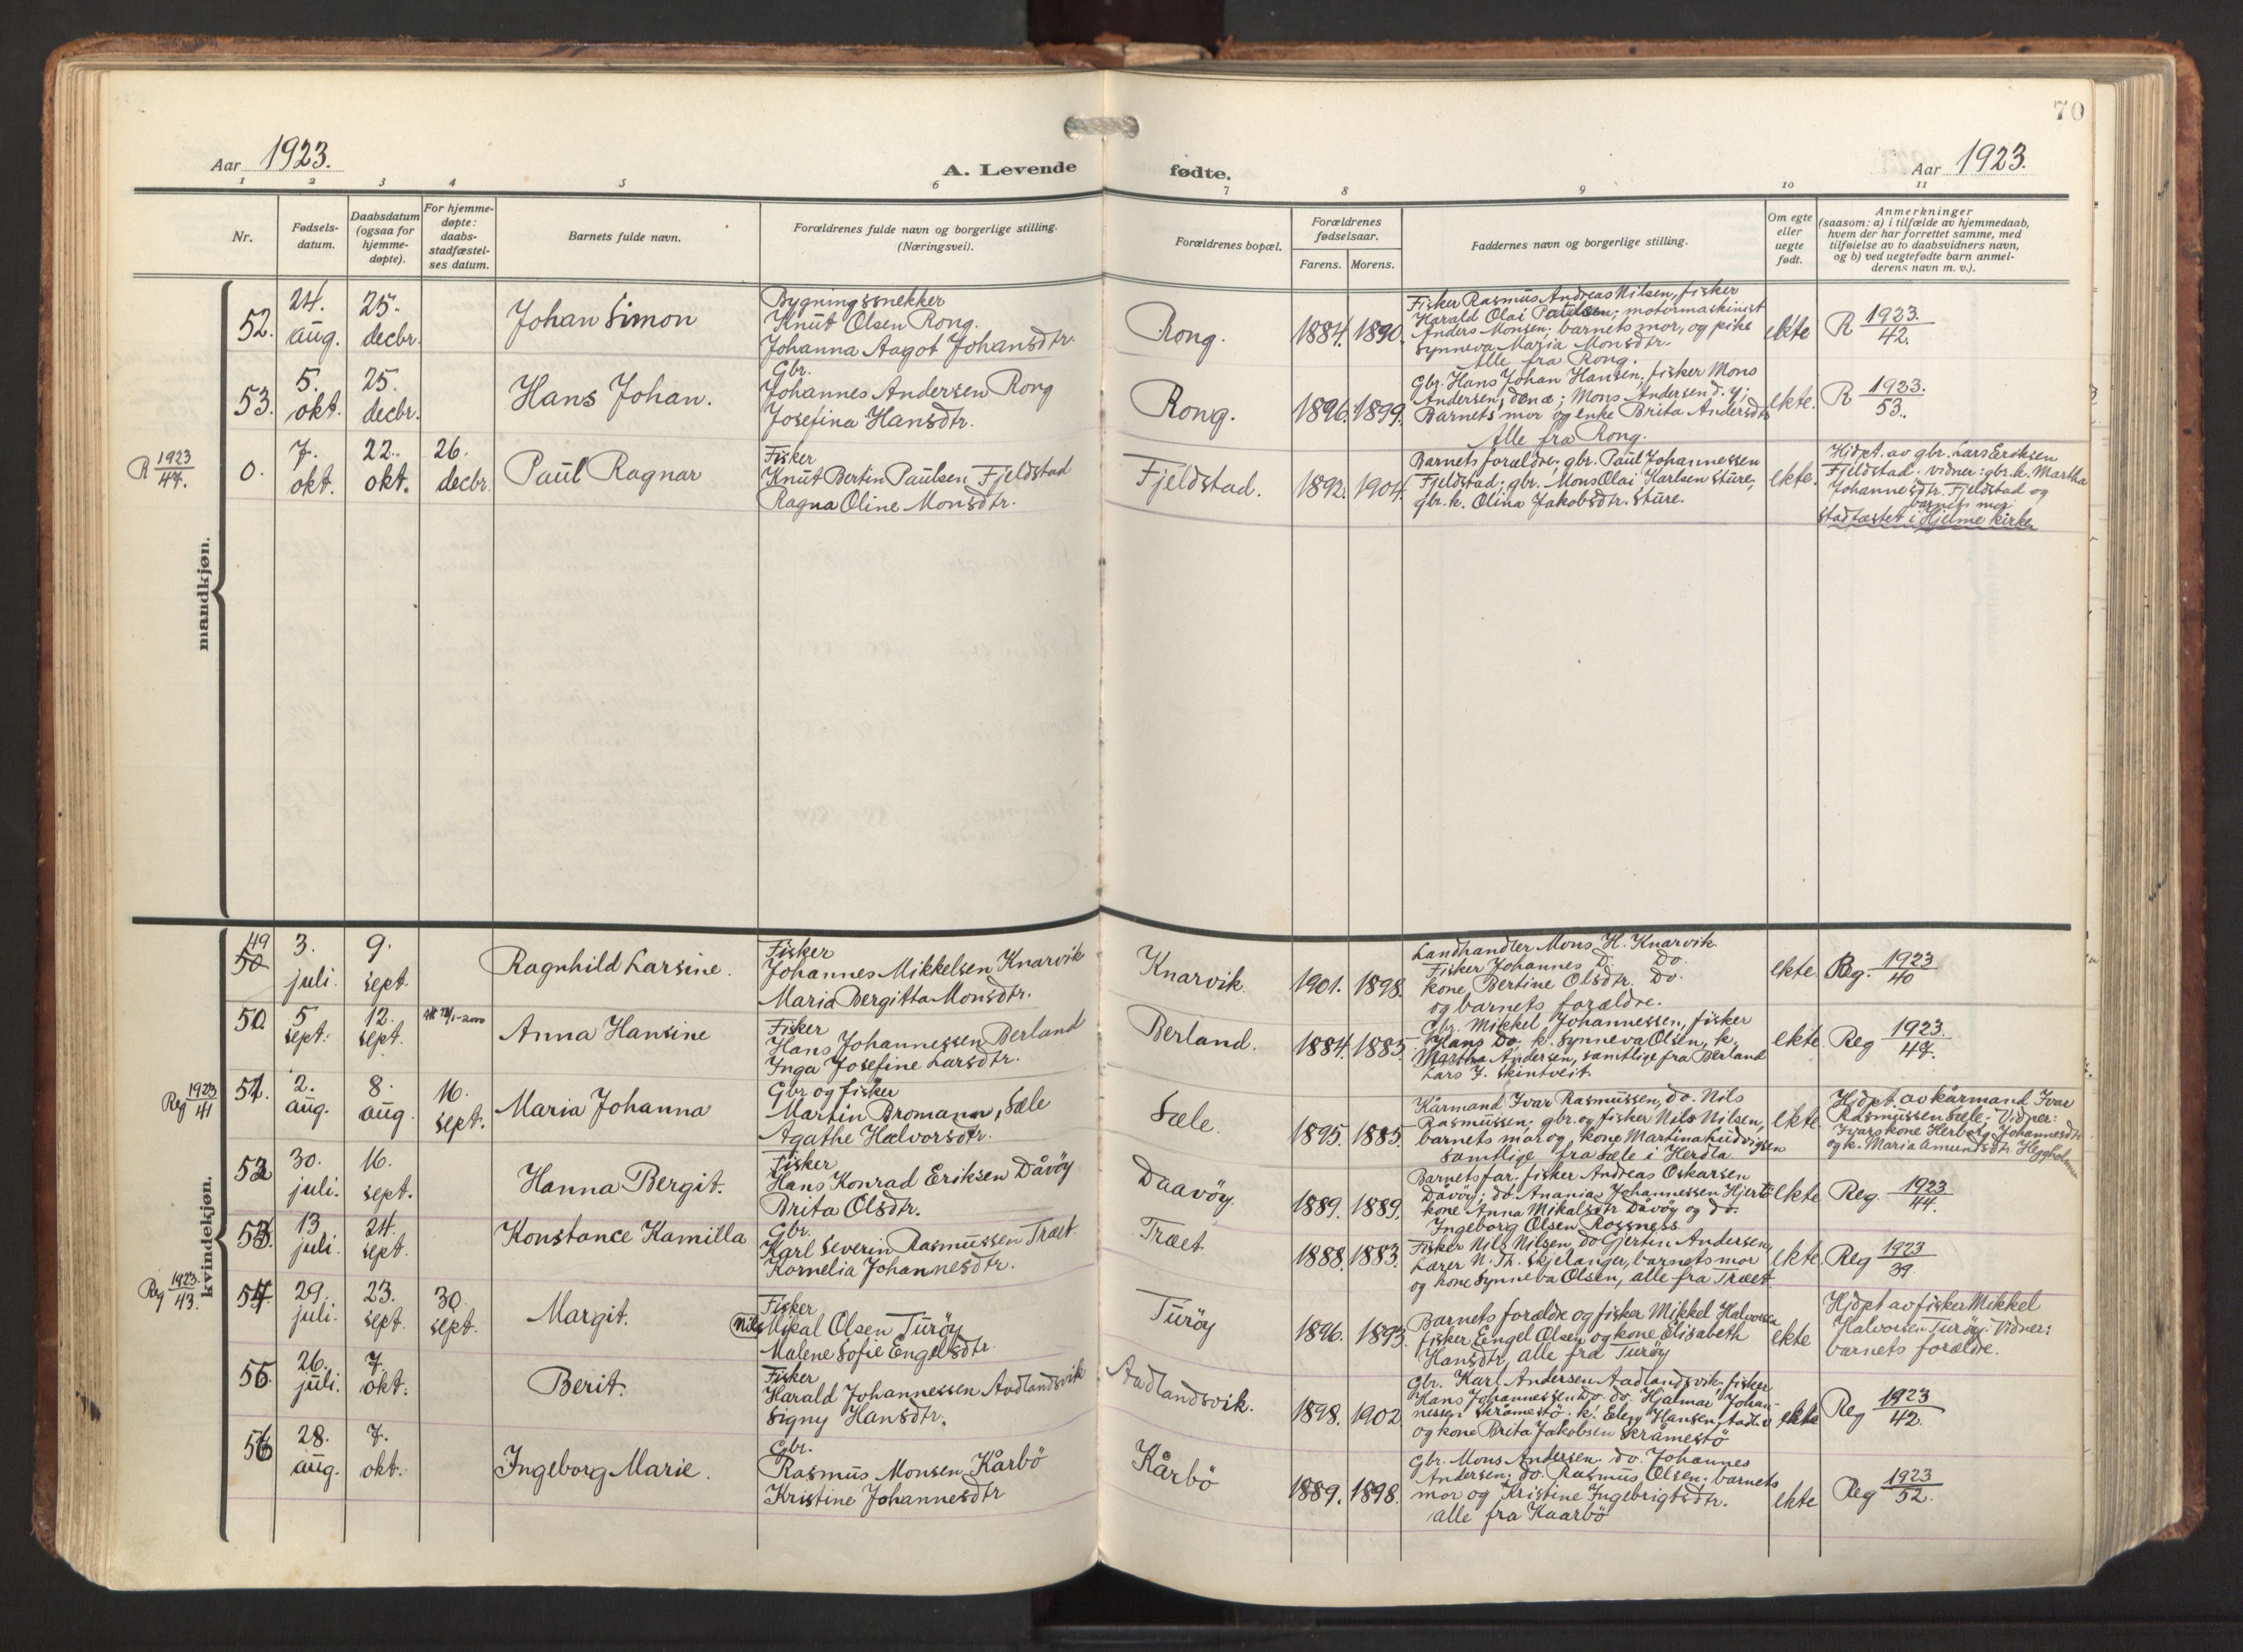 70
Aar 1923.
A. Levende fødte.
Aar 1923.
1 2 3 4 5 6 7 8 9 10 11
Nr.
Fødsels-
datum.
Daabsdatum
(ogsaa for
hjemme-
døpte).
For hjemme-
døpte:
daabs-
stadfæstel-
ses datum.
Barnets fulde navn.
Forældrenes fulde navn og borgerlige stilling.
(Næringsvei).
Forældrenes bopæl.
Forældrenes
fødselsaar.
Farens. Morens.
Faddernes navn og borgerlige stilling.
Om egte
eller
uegte
født.
Anmerkninger
(saasom: a) i tilfælde av hjemmedaab,
hvem der har forrettet samme, med
tilføielse av to daabsvidners navn,
og b) ved uegtefødte barn anmel-
derens navn m. v.).
mandkjøn.
52.
24.
aug.
25.
decbr.
Johan Simon
Bygningssnekker
Knut Olsen Rong.
Johanna Aagot Johansdtr.
Rong.
1884. 1890.
Fisker Rasmus Andreas Nilsen, fisker
Harald Olai Paulsen; motormaskinist
Anders Monsen; barnets mor, og pike
Synneva Maria Monsdtr.
Alle fra Rong.
ekte
R 1923.
42.
53.
5.
okt.
25.
decbr.
Hans Johan.
Gbr.
Johannes Andersen Rong
Josefina Hansdtr.
Rong.
1896. 1899.
Gbr. Hans Johan Hansen, fisker Mons
Andersen, d.æ; Mons Andersen d. y;
Barnets mor og enke Brita Andersdtr
Alle fra Rong.
ekte.
R 1923.
53.
R 1923
47.
0.
7.
okt.
22.
okt.
26.
decbr.
Paul Ragnar
Fisker
Knut Bertin Paulsen Fjeldstad
Ragna Oline Monsdtr.
Fjeldstad.
1892. 1904.
Barnets forældre; gbr. Paul Johannessen
Fjeldstad; gbr. Mons Olai Karlsen Sture;
gbr. k. Olina Jakobsdtr. Sture.
ekte.
Hjdpt. av gbr. Lars Eriksen
Fjeldstad. vidner: gbr. k. Martha
Johannesdtr. Fjeldstad og
barnets mor
Stadfæstet i Hjelme kirke
kvindekjøn.
49
50
3.
juli.
9.
sept.
Ragnhild Larsine.
Fisker
Johannes Mikkelsen Knarvik
Maria Bergitta Monsdtr.
Knarvik.
1901. 1898.
Landhandler Mons H. Knarvik.
Fisker Johannes D. Do.
kone Bertine Olsdtr. Do
og barnets forældre.
ekte
Reg. 1923
40
50
5
sept.
12.
sept.
Anna Hansine
Fisker
Hans Johannessen Berland
Inga Josefine Larsdtr.
Berland.
1884. 1885.
Gbr. Mikkel Johannessen, fisker
Hans Do. k. Synneva Olsen, k.
Martha Andersen, samtlige fra Berland
Lars J. Skintveit.
ekte
Reg 1923.
47.
Reg 1923
41
51.
2.
aug.
8.
aug.
16.
sept.
Maria Johanna
Gbr. og fisker
Martin Bromann, Sæle
Agathe Halvorsdtr.
Sæle.
1895. 1885.
Kårmand Ivar Rasmussen, do. Nils
Rasmussen; gbr. og fisker Nils Nilsen,
barnets mor og kone Martina Ludvigsen
samtlige fra Sæle i Herdla.
ekte
Hjdpt. av kårmand Ivar
Rasmussen Sæle. Vidner:
Ivars kone Herborg Johannesdtr
og k. Maria Amundsdtr. Heggholmen
52
30.
juli.
16.
sept.
Hanna Bergit.
Fisker
Hans Konrad Eriksen Dåvöy
Brita Olsdtr.
Daavöy.
1889. 1889.
Barnets far, fisker Andreas Oskarsen
Dåvöy; do. Ananias Johannessen Hjertö
kone Anna Mikalsdtr Dåvöy og do.
Ingeborg Olsen Rossnes.
ekte
Reg. 1923
44.
53.
13
juli.
24.
sept.
Konstance Kamilla
Gbr.
Karl Severin Rasmussen Træt
Kornelia Johannesdtr.
Træt.
1888. 1883.
Fisker Nils Nilsen, do Gjertin Andersen,
Lærer N. Th. Skjelanger, barnets mor
og kone Synneva Olsen, alle fra Træet
ekte.
Reg 1923
39.
Reg 1923.
43.
54.
29.
juli.
23.
sept.
30.
sept.
Margit.
Fisker
Nils Mikal Olsen Turöy
Malene Sofie Engelsdtr.
Turöy
1896. 1893.
Barnets forældre og fisker Mikkel Halvorsen
fisker Engel Olsen og kone Elisabeth
Hansdtr, alle fra Turöy
ekte
Hjdpt av fisker Mikkel
Halvorsen Turöy. Vidner:
barnets forældre.
55
26.
juli.
7.
okt.
Berit.
Fisker
Harald Johannessen Aadlandsvik
Signy Hansdtr.
Aadlandsvik.
1898. 1902
Gbr. Karl Andersen Aadlandsvik, fisker
Hans Johannessen do. do. Hjalmar Johan-
nessen Skråmestö. k. Hansen Aadl.v
og kone Brita Jakobsen Skråmestö
ekte
Reg 1923
42.
56
28.
aug.
7.
okt.
Ingeborg Marie.
Gbr.
Rasmus Monsen Kårbö
Kristine Johannesdtr
Kårbö
1889. 1898.
Gbr. Mons Andersen. do. Johannes
Andersen; do. Rasmus Olsen; barnets
mor og Kristine Ingebrigtsdtr.
alle fra Kaarbö
ekte
Reg 1923
52.